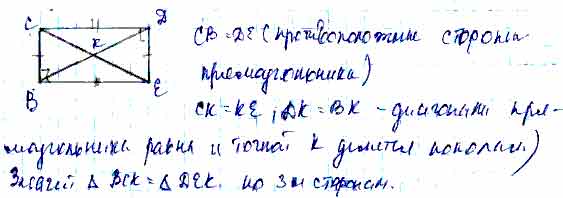 C D
K
B E
CB = DE (противоположные стороны
прямоугольника)
CK = KE, DK = BK - диагонали пря-
моугольника равны и точкой K делятся пополам.)
Значит Δ BCK = Δ DEK. по 3м сторонам.